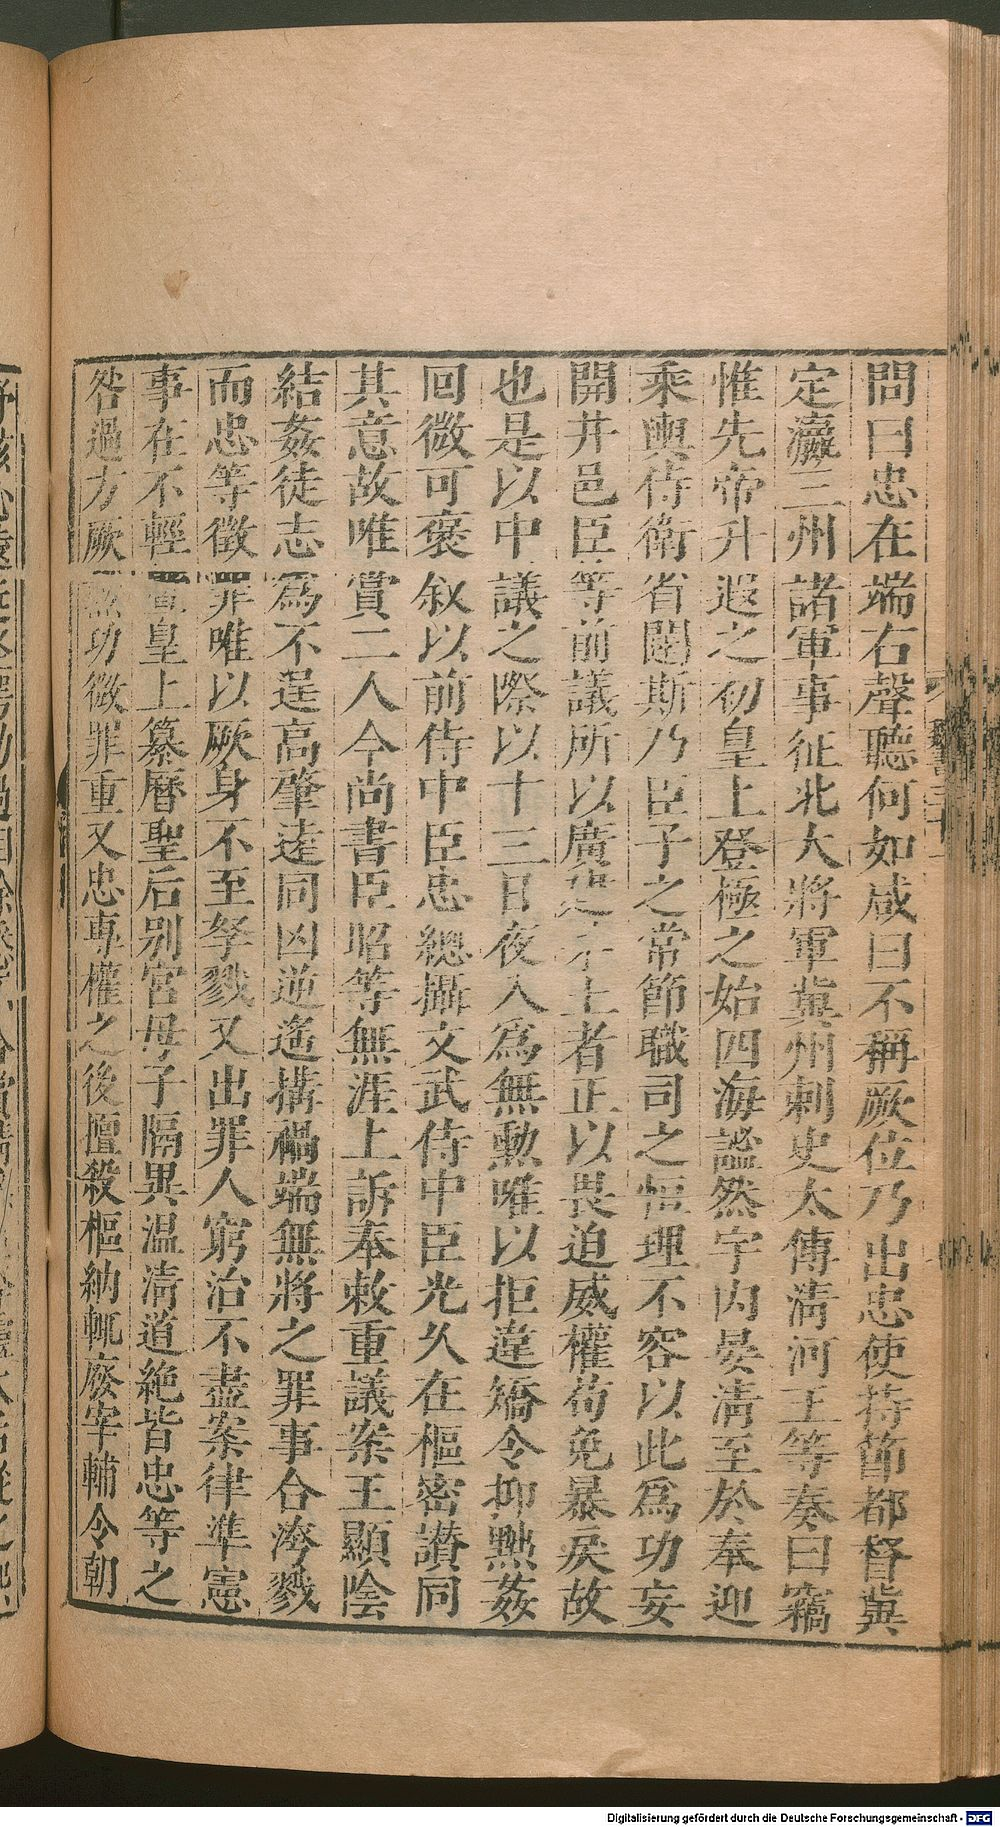 問曰忠在端右聲聽何如咸曰不稱厥位乃出忠使持節都督冀
定瀛三州諸軍事征北大將軍冀州刺史太傅淸河王等奏曰竊
惟先帝升遐之初皇上登極之始四海謐然宇内晏淸至於奉迎
乘輿侍衛省闥斯乃臣子之常節職司之恒理不容以此爲功妄
開井邑臣等前議所以廣建茅土者正以畏迫威權苟免暴戾故
也是以中議之際以十三日夜入爲無勲唯以拒違矯令抑黜姦
回微可褒叙以前侍中臣忠總攝文武侍中臣光久在樞密讃同
其意故唯賞二人今尚書臣昭等無涯上訴奉敕重議案王顯陰
結姦徒志爲不逞高肇遠同凶逆遙構禍端無將之罪事合洿戮
而忠等徵罪唯以厥身不至孥戮又出罪人窮治不盡案律準憲
事在不輕皇上纂曆聖后别宮母子隔異温淸道絶皆忠等之
咎過方厥功微罪重又忠專權之後擅殺樞納輒廢宰輔令朝
Digitalisierung gefördert durch die Deutsche Forschungsgemeinschaft - DFG